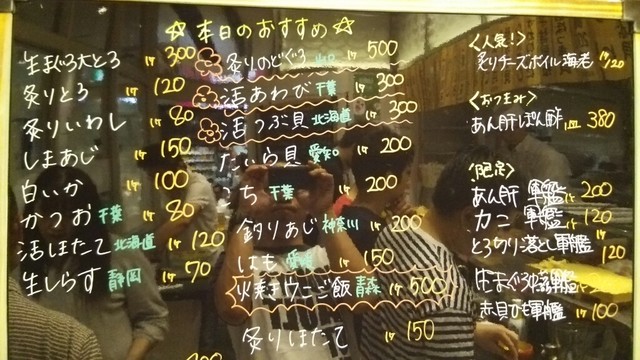 本日のおすすめ
生まぐろ大とろ 1ケ 300
炙りとろ 1ケ 120
炙りいわし 1ケ 80
しまあじ 1ケ 150
白いか 1ケ 100
かつお 千葉 1ケ 80
活ほたて 北海道 1ケ 120
生しらす 静岡 1ケ 70
炙りのどぐろ 山口 1ケ 500
活あわび 千葉 1ケ 300
活つぶ貝 北海道 1ケ 300
たいら貝 愛知 1ケ 200
こち 千葉 1ケ 200
釣りあじ 神奈川 1ケ 200
はも 1ケ 150
火焼きウニご飯 青森 1ケ 500
炙りほたて 1ケ 150
<人気!>
炙りチーズボイル海老 1ケ120
<おつまみ>
あん肝ぽん酢 一皿 380
あん肝 軍艦 1ケ 200
カニ 軍艦 1ケ 120
とろ切り落とし軍艦 1ケ 120
生まぐろ 軍艦
赤貝ひも軍艦 1ケ 100